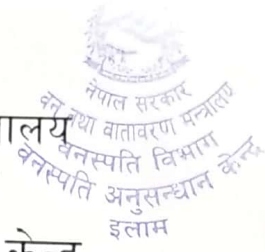 नेपाल सरकार
वन तथा वातावरण मन्त्रालय
ालय
वनस्पति विभाग
वनस्पति अनुसन्धान केन्द्र
इलाम